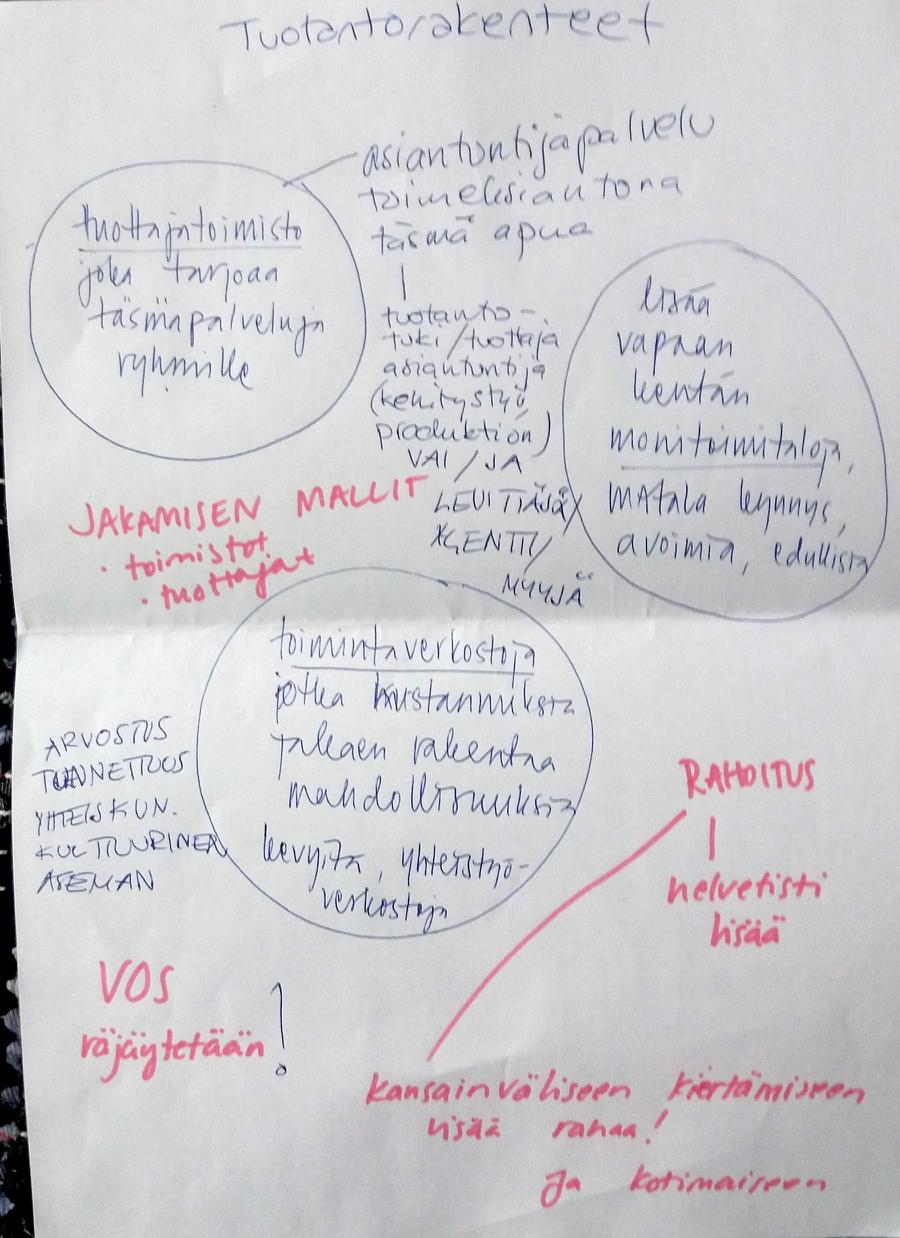 Tuotantorakenteet
asiantuntijapalvelu
toimeksiantona
täsmä apua
tuottajatoimisto
joka tarjoaa
täsmäpalveluja
ryhmille
tuotanto-
tuki/tuottaja
asiantuntija
(kehitystyö
produktion)
VAI / JA
LEVITTÄJÄ/
AGENTTI/
MYYJÄ
lisää
vapaan
kentän
monitoimitaloja,
matala kynnys,
avoimia, edullisia
JAKAMISEN MALLIT
• toimistot
• tuottajat
toimintaverkostoja
jotka kustannuksia
jakaen rakentaa
mahdollisuuksia
kevyitä, yhteistyö-
verkostoja
ARVOSTUS
TUNNETTUUS
YHTEISKUN.
KULTTUURINEN
ASEMAN
RAHOITUS
helvetisti
lisää
VOS
räjäytetään!
kansainväliseen kiertämiseen
lisää rahaa!
Ja kotimaiseen